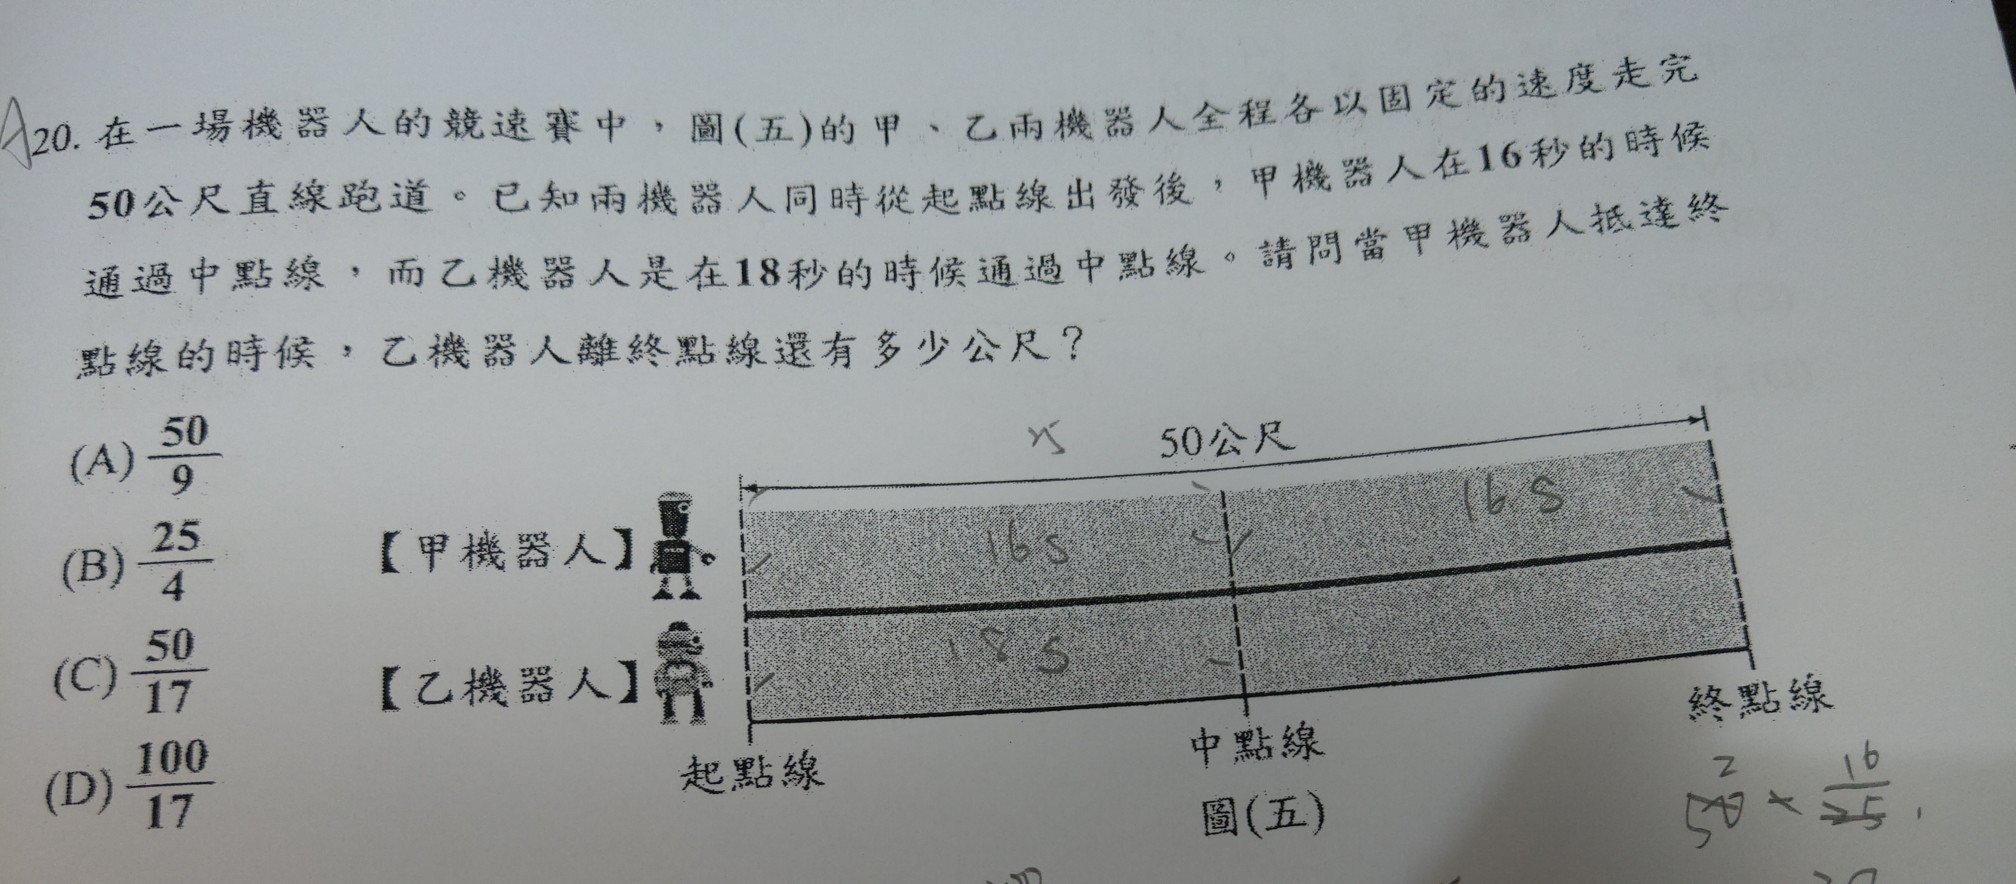 A 20. 在一場機器人的競速賽中，圖(五)的甲、乙兩機器人全程各以固定的速度走完
50公尺直線跑道。已知兩機器人同時從起點線出發後，甲機器人在16秒的時候
通過中點線，而乙機器人是在18秒的時候通過中點線。請問當甲機器人抵達終
點線的時候，乙機器人離終點線還有多少公尺？
(A) 50/9
(B) 25/4
(C) 50/17
(D) 100/17
50公尺
【甲機器人】
16s
16s
【乙機器人】
18s
起點線
中點線
終點線
圖(五)
2
50 × 16/25